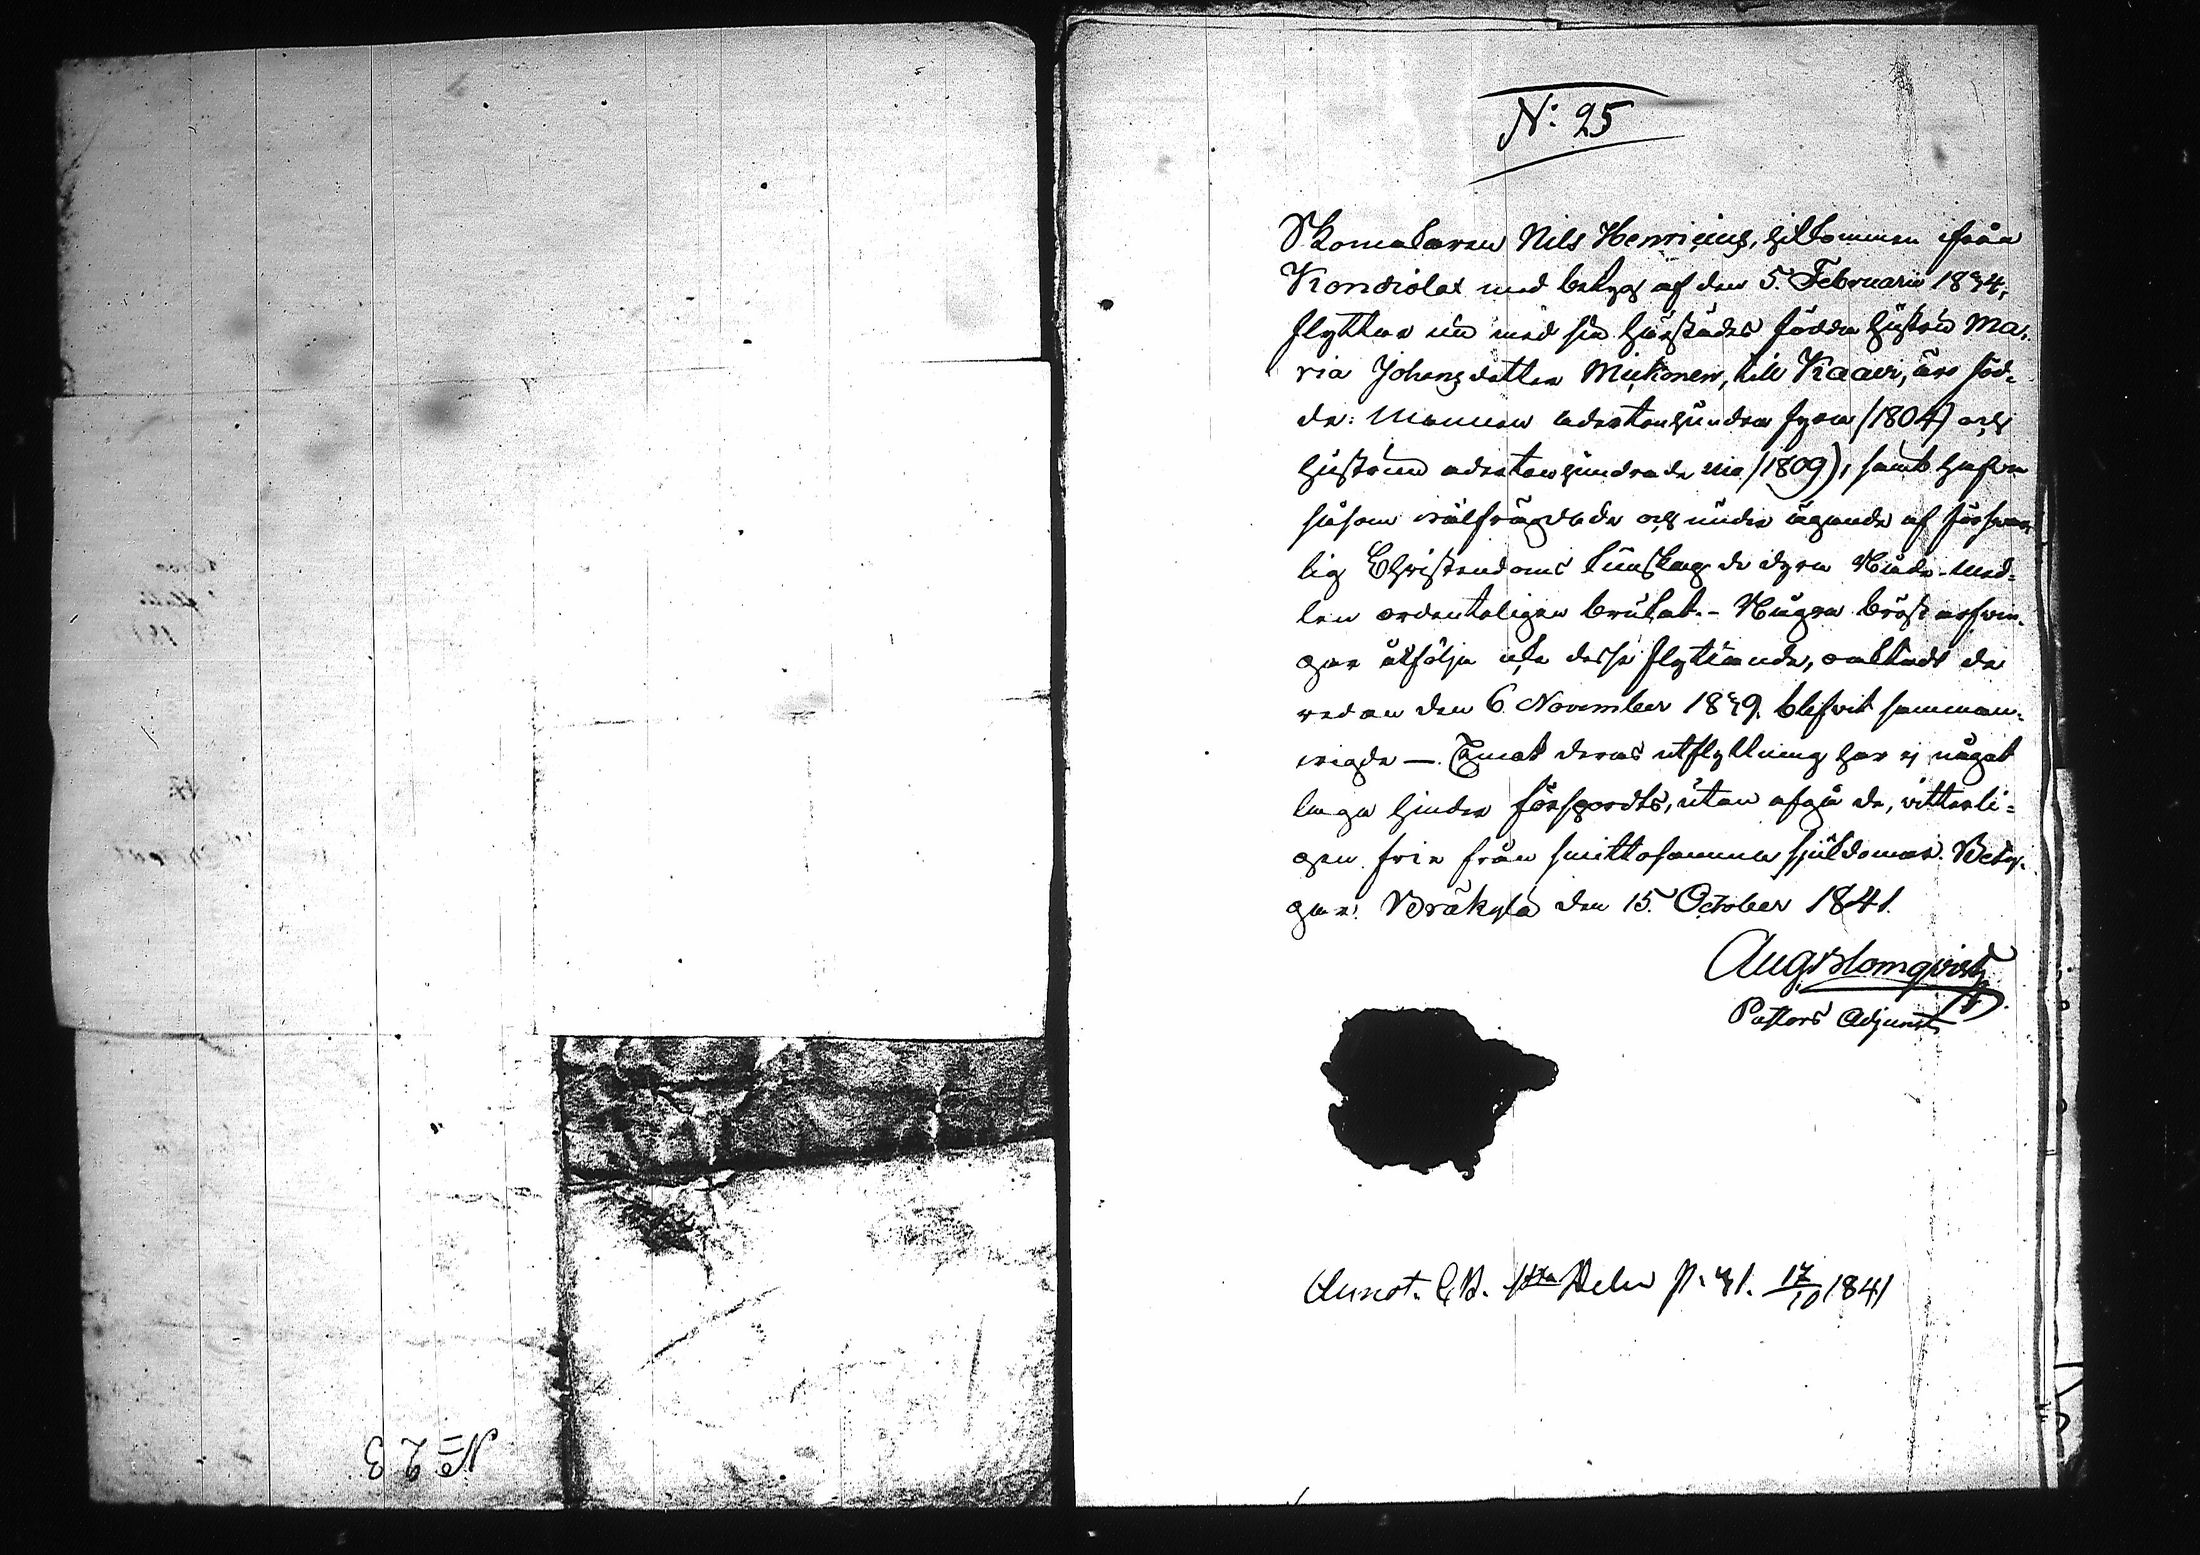 N: 25
Skomakaren Nils Henricius, hitkommen ifrån
Kondiolax med betyg af den 5. Februarii 1834,
flyttar nu med sin härstädes födda hustru Ma-
ria Johansdotter Miikonen, till Kaavi, äro föd-
de: Mannen adertonhundra fyra (1804) och
hustrun adertonhundrade nio (1809), samt hafva
såsom välfrägdade och under ägande af försvar-
lig Christendoms kunskap de dyra Nåde-Med-
len ordenteligen brukat. - Några bröst arfvin-
gar åtfölja icke desse flyttande, oaktadt de
redan den 6 November 1839. blefvit samman-
vigde —. Emot deras utflyttning har ej något
laga hinder försports, utan afgå de, vitterli-
gen frie från smittosamma sjukdomar. Bety-
gar: Bräkylä den 15. October 1841.
Aug Blomqvist
Pastors Adjunct
Annot. C.B. 1sta Delen p. 31. 17/10 1841
№ 23